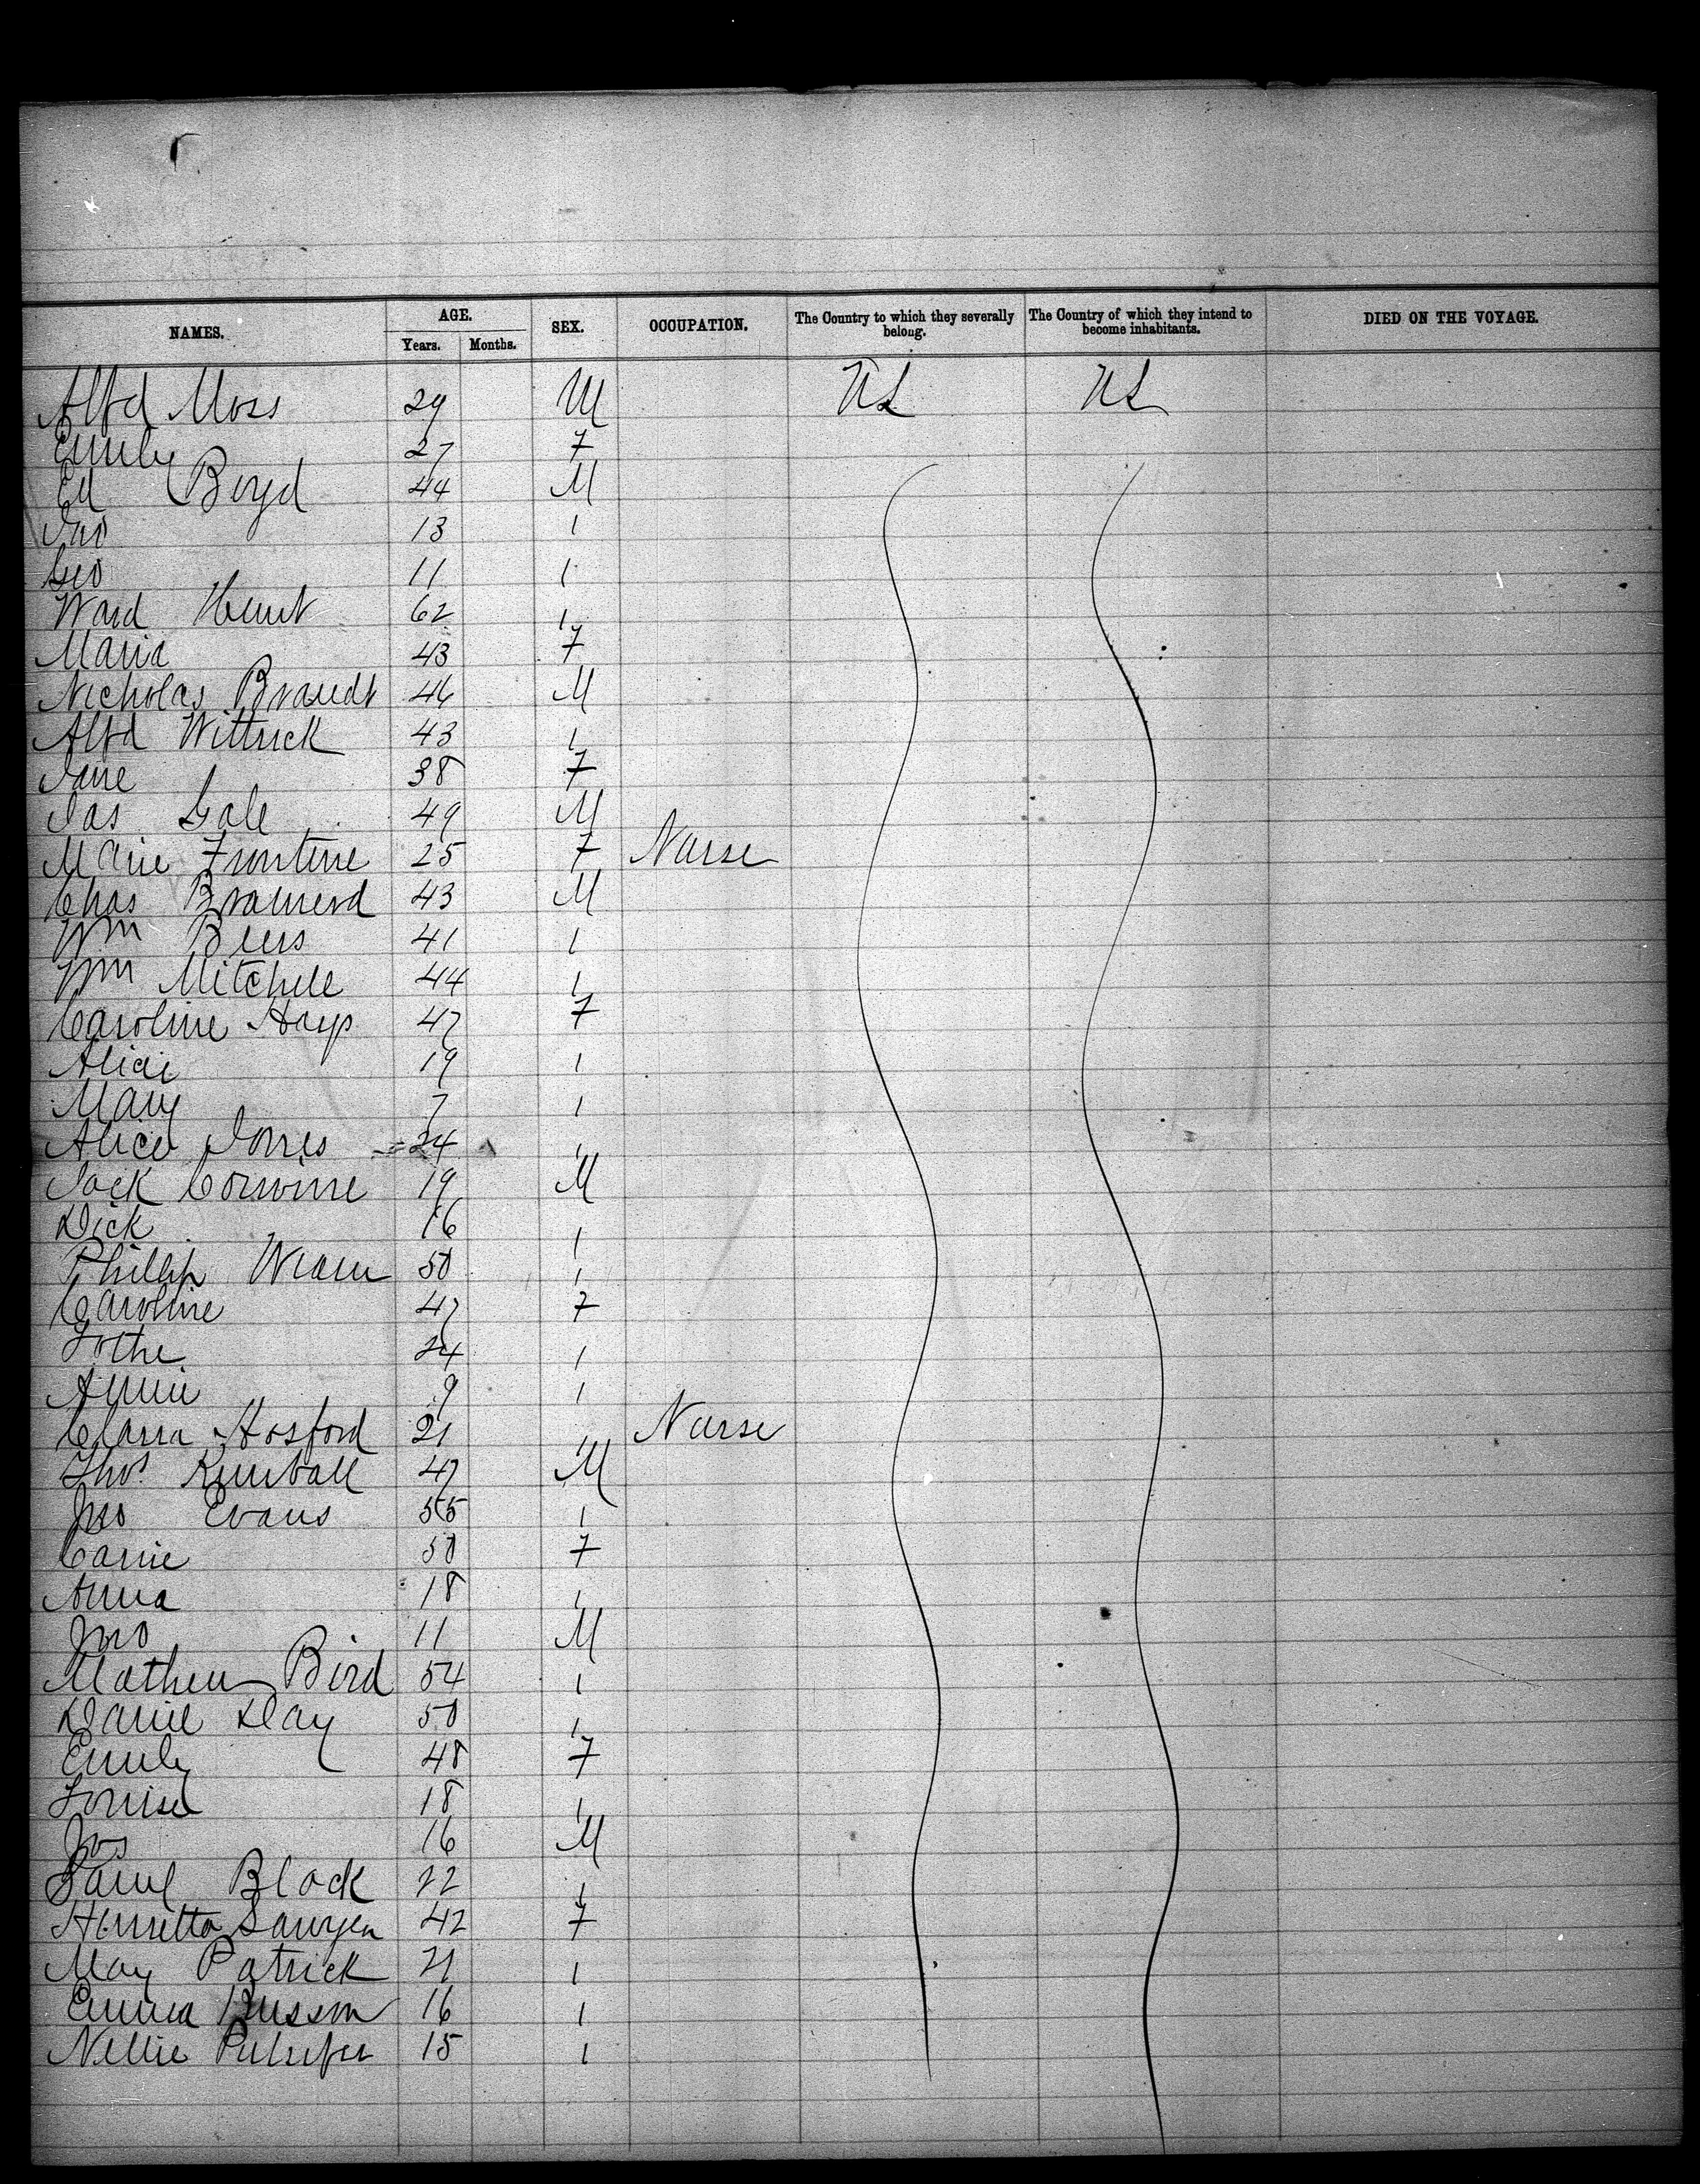 NAMES. AGE. Years. Months. SEX. OCCUPATION. The Country to which they severally belong. The Country of which they intend to become inhabitants. DIED ON THE VOYAGE.
Alfd Moss 29 M US US
Emily 27 F
Ed Boyd 44 M
Jno 13 1
Geo 11 1
Ward Hunt 62 1
Maria 43 F
Nicholas Brandt 46 M
Alfd Wittrick 43 1
Jane 38 F
Jas Gale 49 M
Marie Frontine 25 F Nurse
Chas Brainerd 43 M
Wm Beers 41 1
Wm Mitchell 44 1
Caroline Hays 47 F
Alice 19 1
Mary 7 1
Alice Jones 24 1
Jack Corwine 19 M
Dick 16 1
Phillip 50 1
Caroline 47 F
24 1
Annie 9 1
Clara Hosford 21 1 Nurse
Thos. Kimball 47 M
Jno Evans 55 1
Carrie 50 F
Anna 18 1
Jno 11 M
Mathew Bird 54 1
Daniel Day 50 1
Emily 48 F
Louisa 18 1
Jos 16 M
Saml Black 22 1
Henrietta Sawyer 42 F
May Patrick 21 1
Emma 16 1
Nellie Pulsifer 15 1